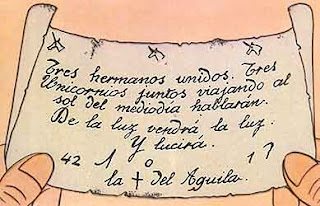 Tres hermanos unidos. Tres
Unicornios juntos viajando al
sol del mediodía hablarán.
De la luz vendrá la luz.
Y lucirá.
42 1 o 1 7
la † del Aguila.